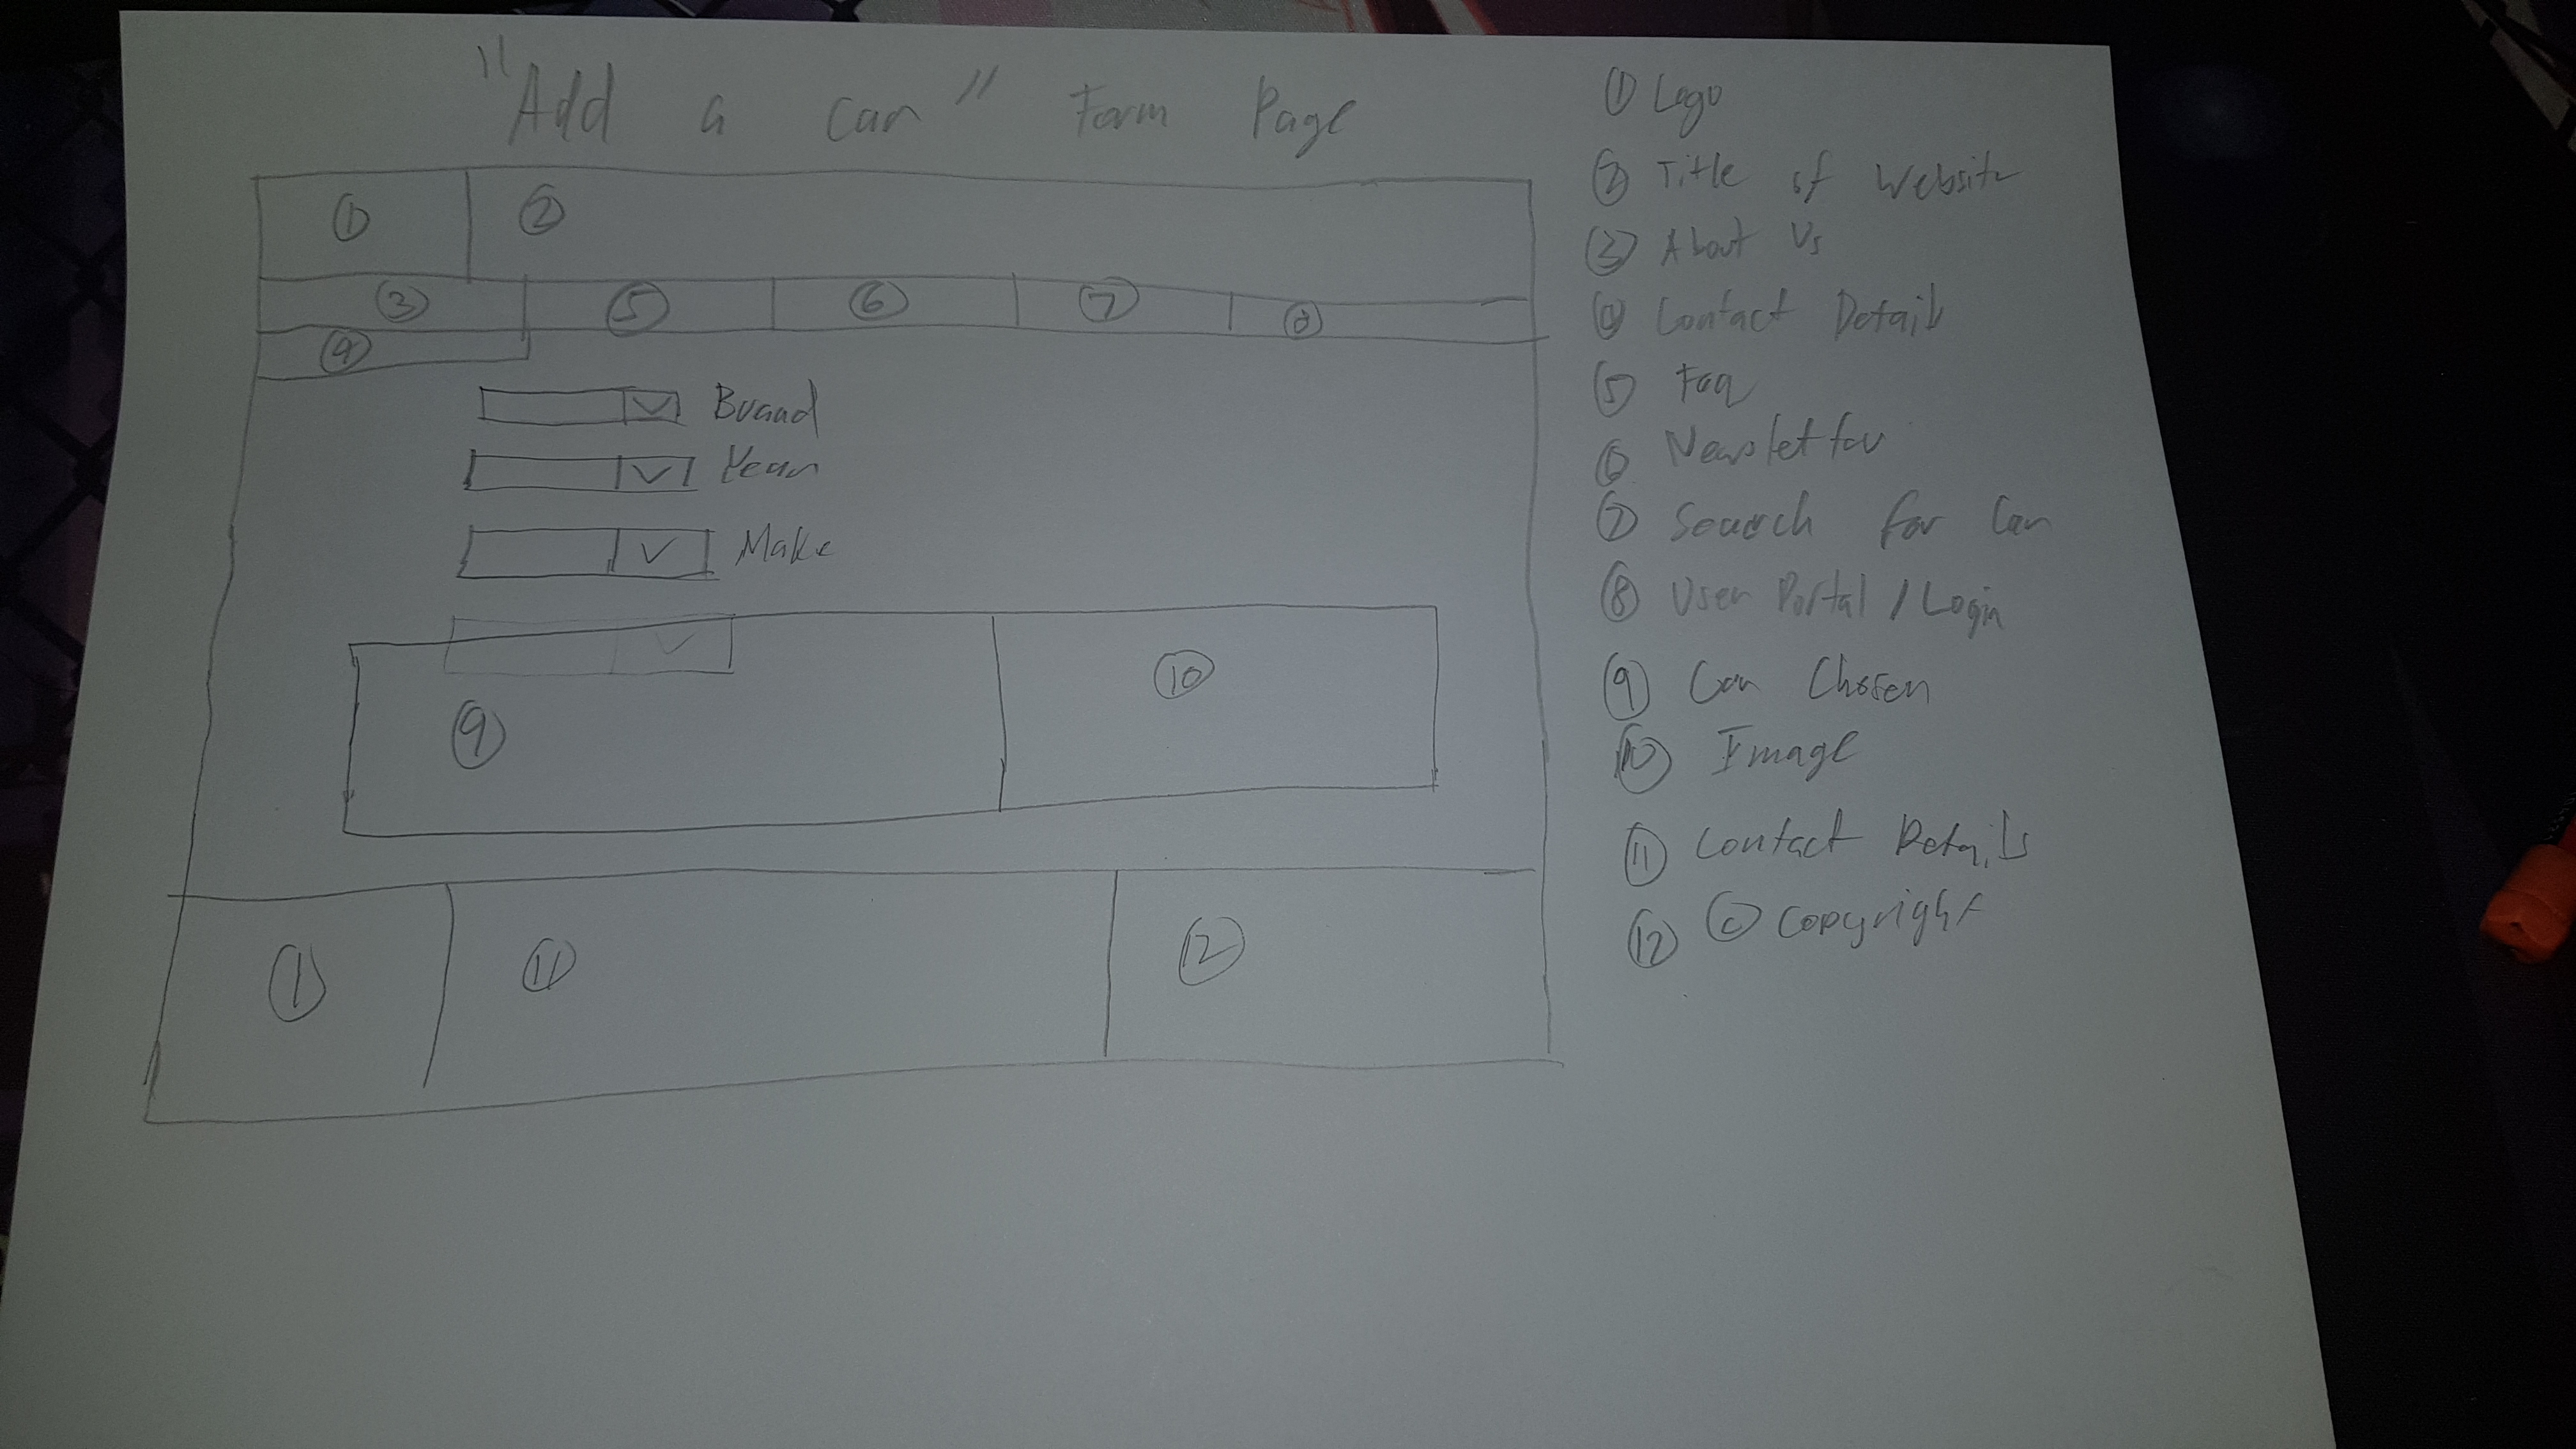 "Add a car" Form Page
① ②
③ ⑤ ⑥ ⑦ ⑧
④
Brand
Year
Make
⑨ ⑩
① ⑪ ⑫
① Logo
② Title of Website
③ About Us
④ Contact Details
⑤ Faq
⑥ Newsletter
⑦ Search for Car
⑧ User Portal / Login
⑨ Car Chosen
⑩ Image
⑪ Contact Details
⑫ © Copyright